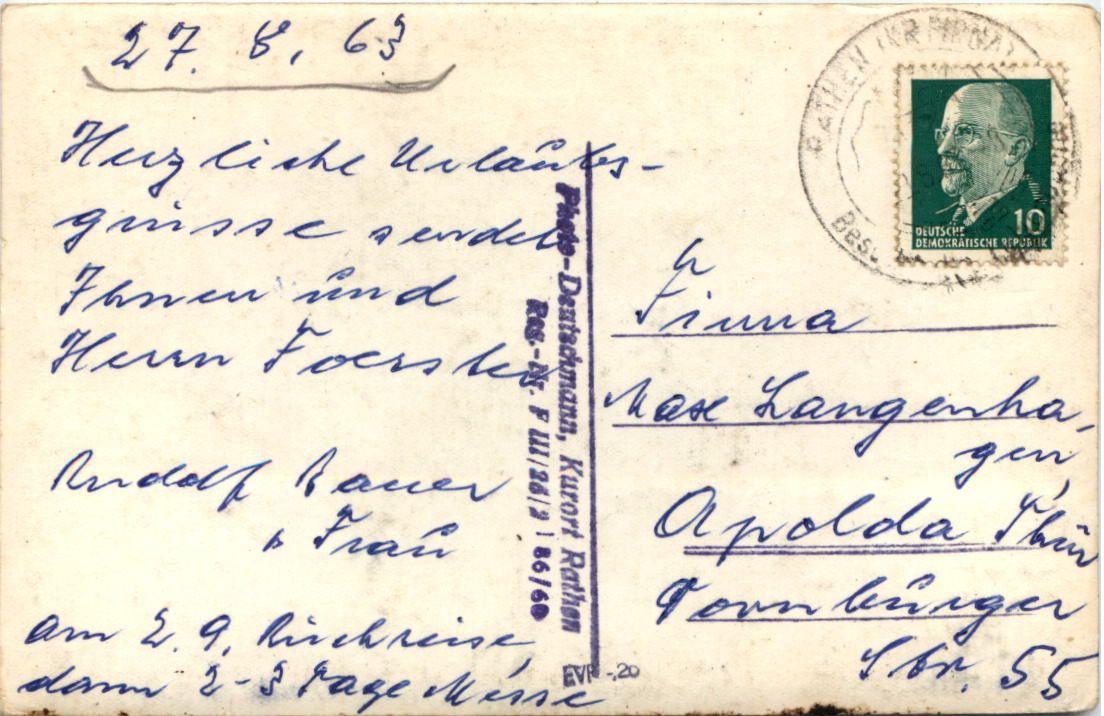 27. 8. 63
Herzliche Urlaubs-
grüsse sendet
Ihnen und
Herrn Foerster
Rudolf Bauer
u Frau
am 2. 9. Rückreise
dann 2-3 Tage Messe
Photo-Deutschmann, Kurort Rathen
Reg.-Nr. F III/26/2 186/60
EVP -.20
RATHEN (KR PIRNA)
DEUTSCHE
DEMOKRATISCHE REPUBLIK
10
Firma
Max Langenha-
gen,
Apolda Thür
Dornburger
Str. 55